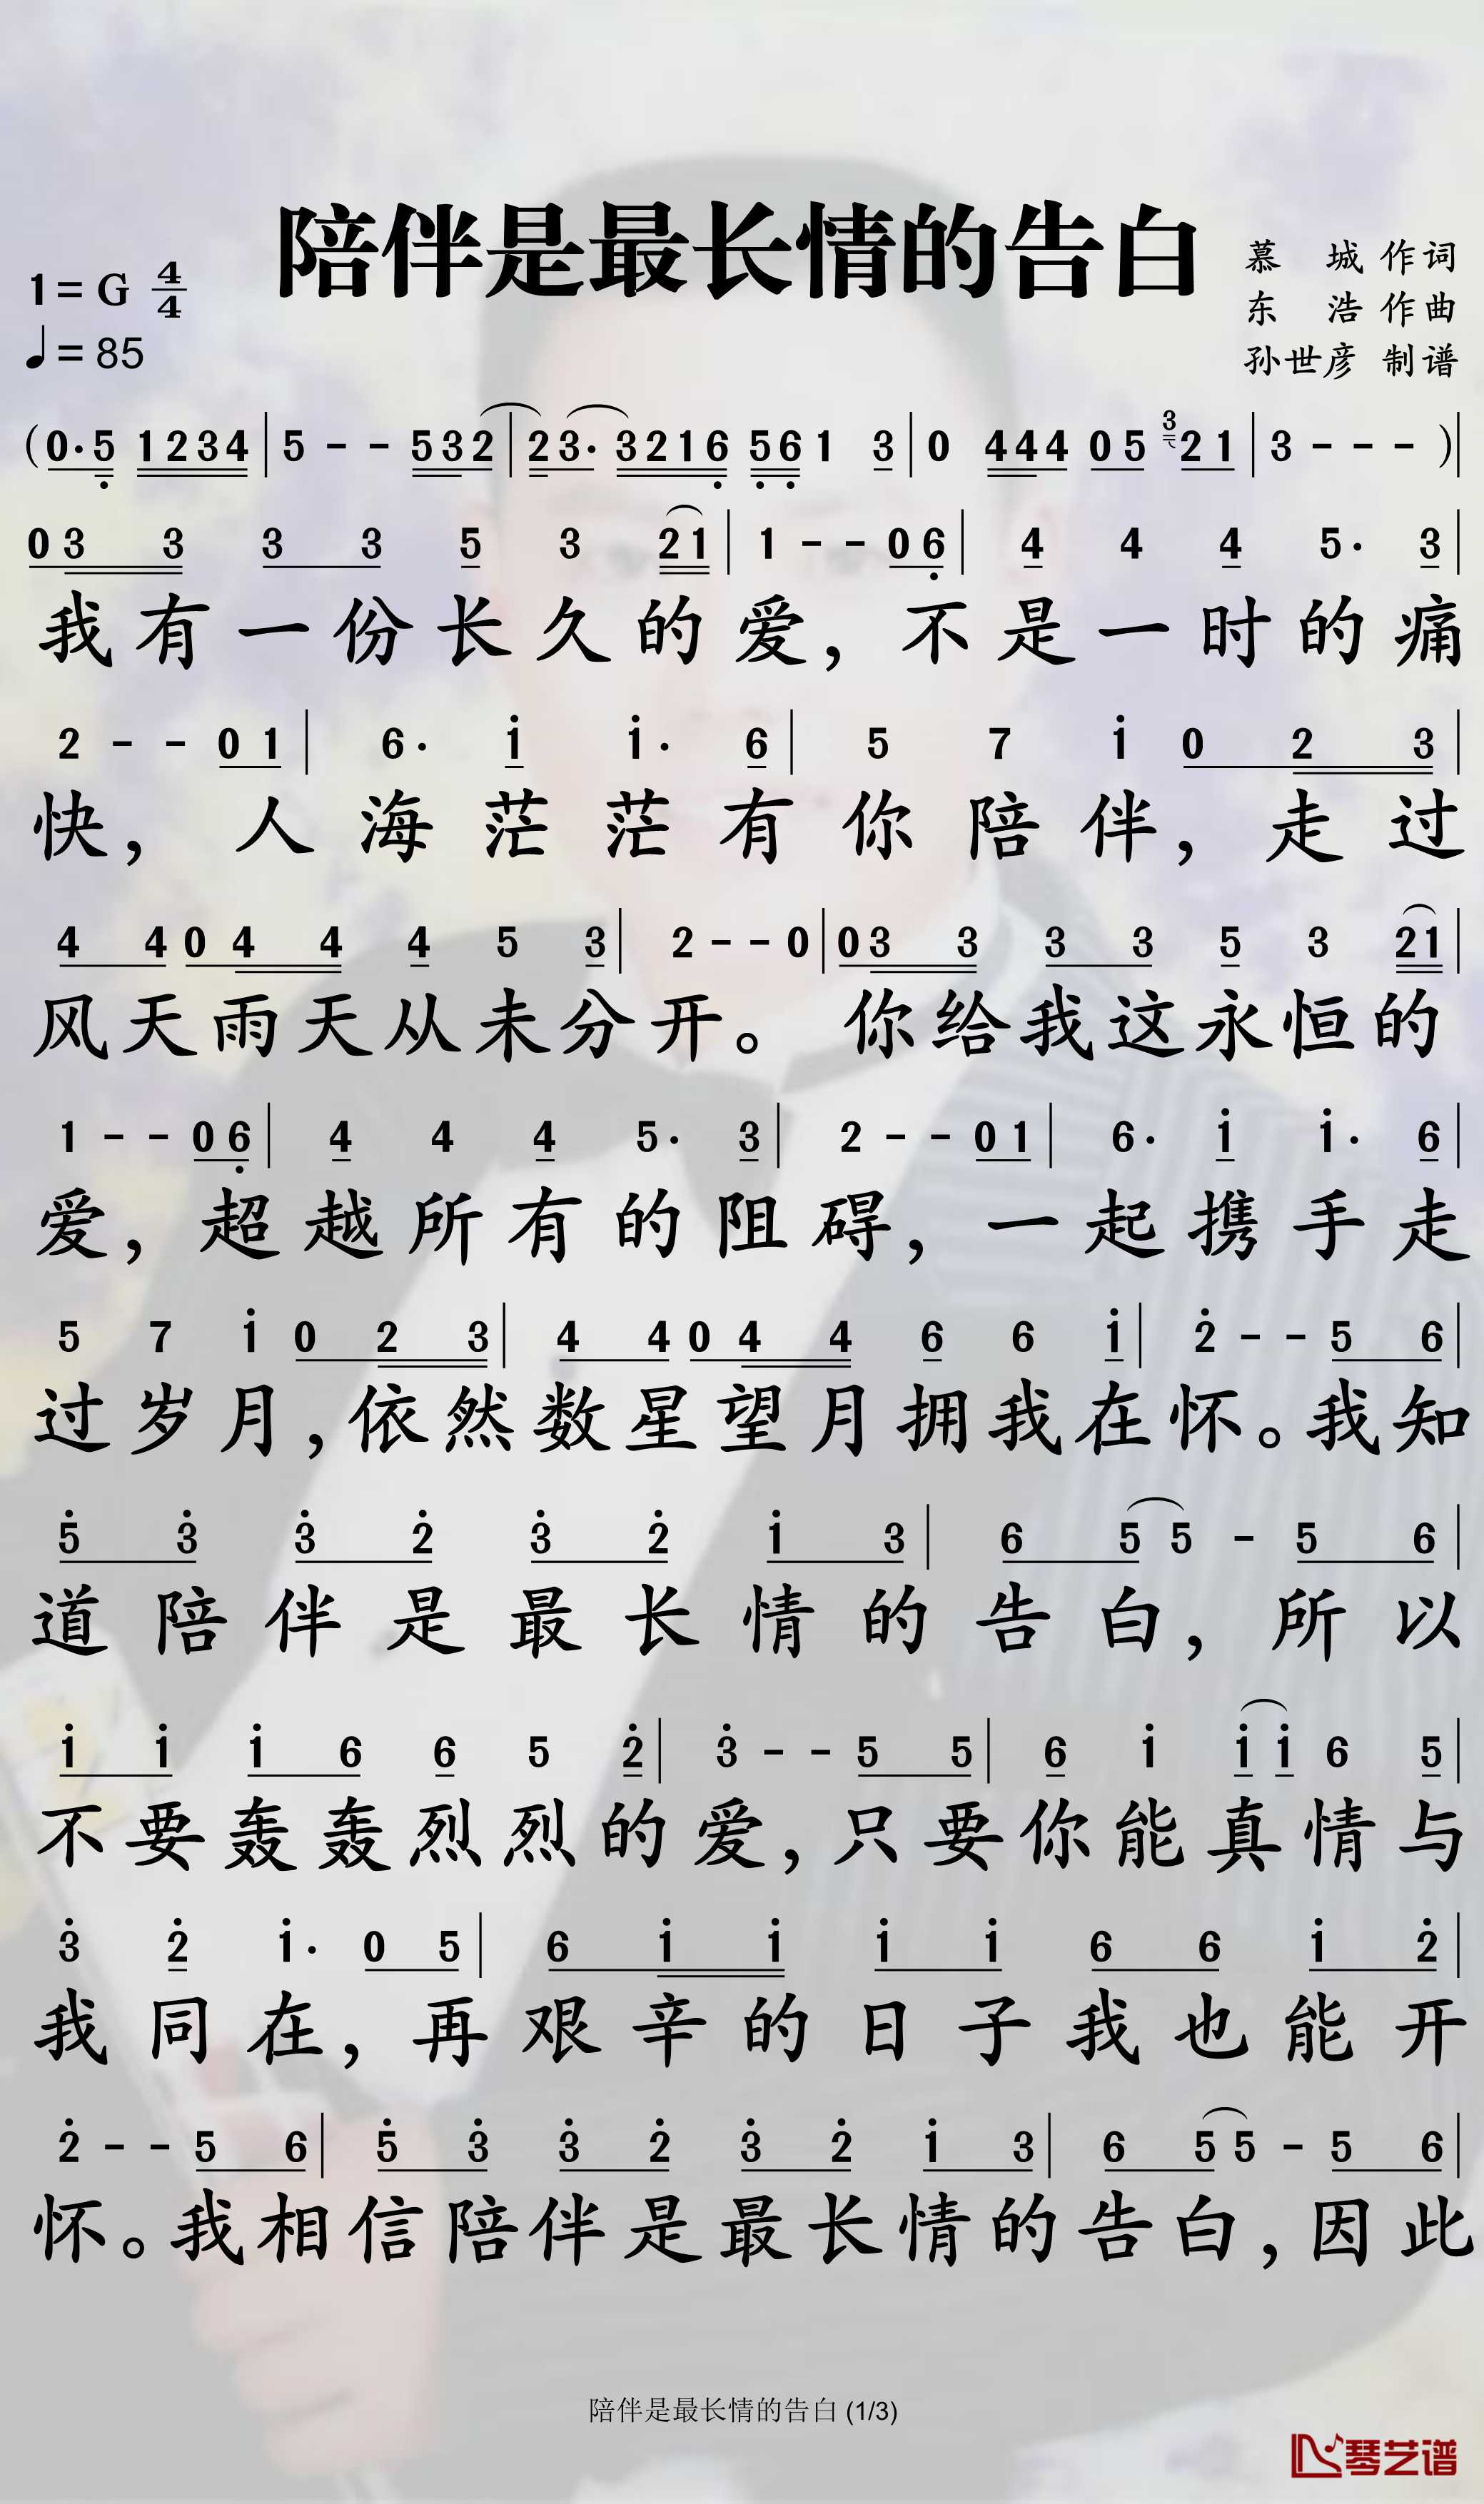 陪伴是最长情的告白
慕 城 作词
东 浩 作曲
孙世彦 制谱
1=G 4/4
♩=85
(0·5 1234|5 - - 532|23· 3216 561 3|0 444 05 321|3 - - -)|
033 33 5 3 21|1 - - 06|4 4 4 5· 3|
我有一份长久的爱,不是一时的痛
2 - - 01|6· 1 1· 6|5 7 1 023|
快,人海茫茫有你陪伴,走过
44 044 4 5 3|2 - - 0|033 33 5 3 21|
风天雨天从未分开。你给我这永恒的
1 - - 06|4 4 4 5· 3|2 - - 01|6· 1 1· 6|
爱,超越所有的阻碍,一起携手走
5 7 1 023|44 044 6 6 1|2 - - 56|
过岁月,依然数星望月拥我在怀。我知
53 32 32 13|65 5 - 56|
道陪伴是最长情的告白,所以
11 16 6 5 2|3 - - 55|6 1 1 1 6 5|
不要轰轰烈烈的爱,只要你能真情与
3 2 1· 05|611 11 66 12|
我同在,再艰辛的日子我也能开
2 - - 56|53 32 32 13|65 5 - 56|
怀。我相信陪伴是最长情的告白,因此
陪伴是最长情的告白 (1/3)
琴艺谱